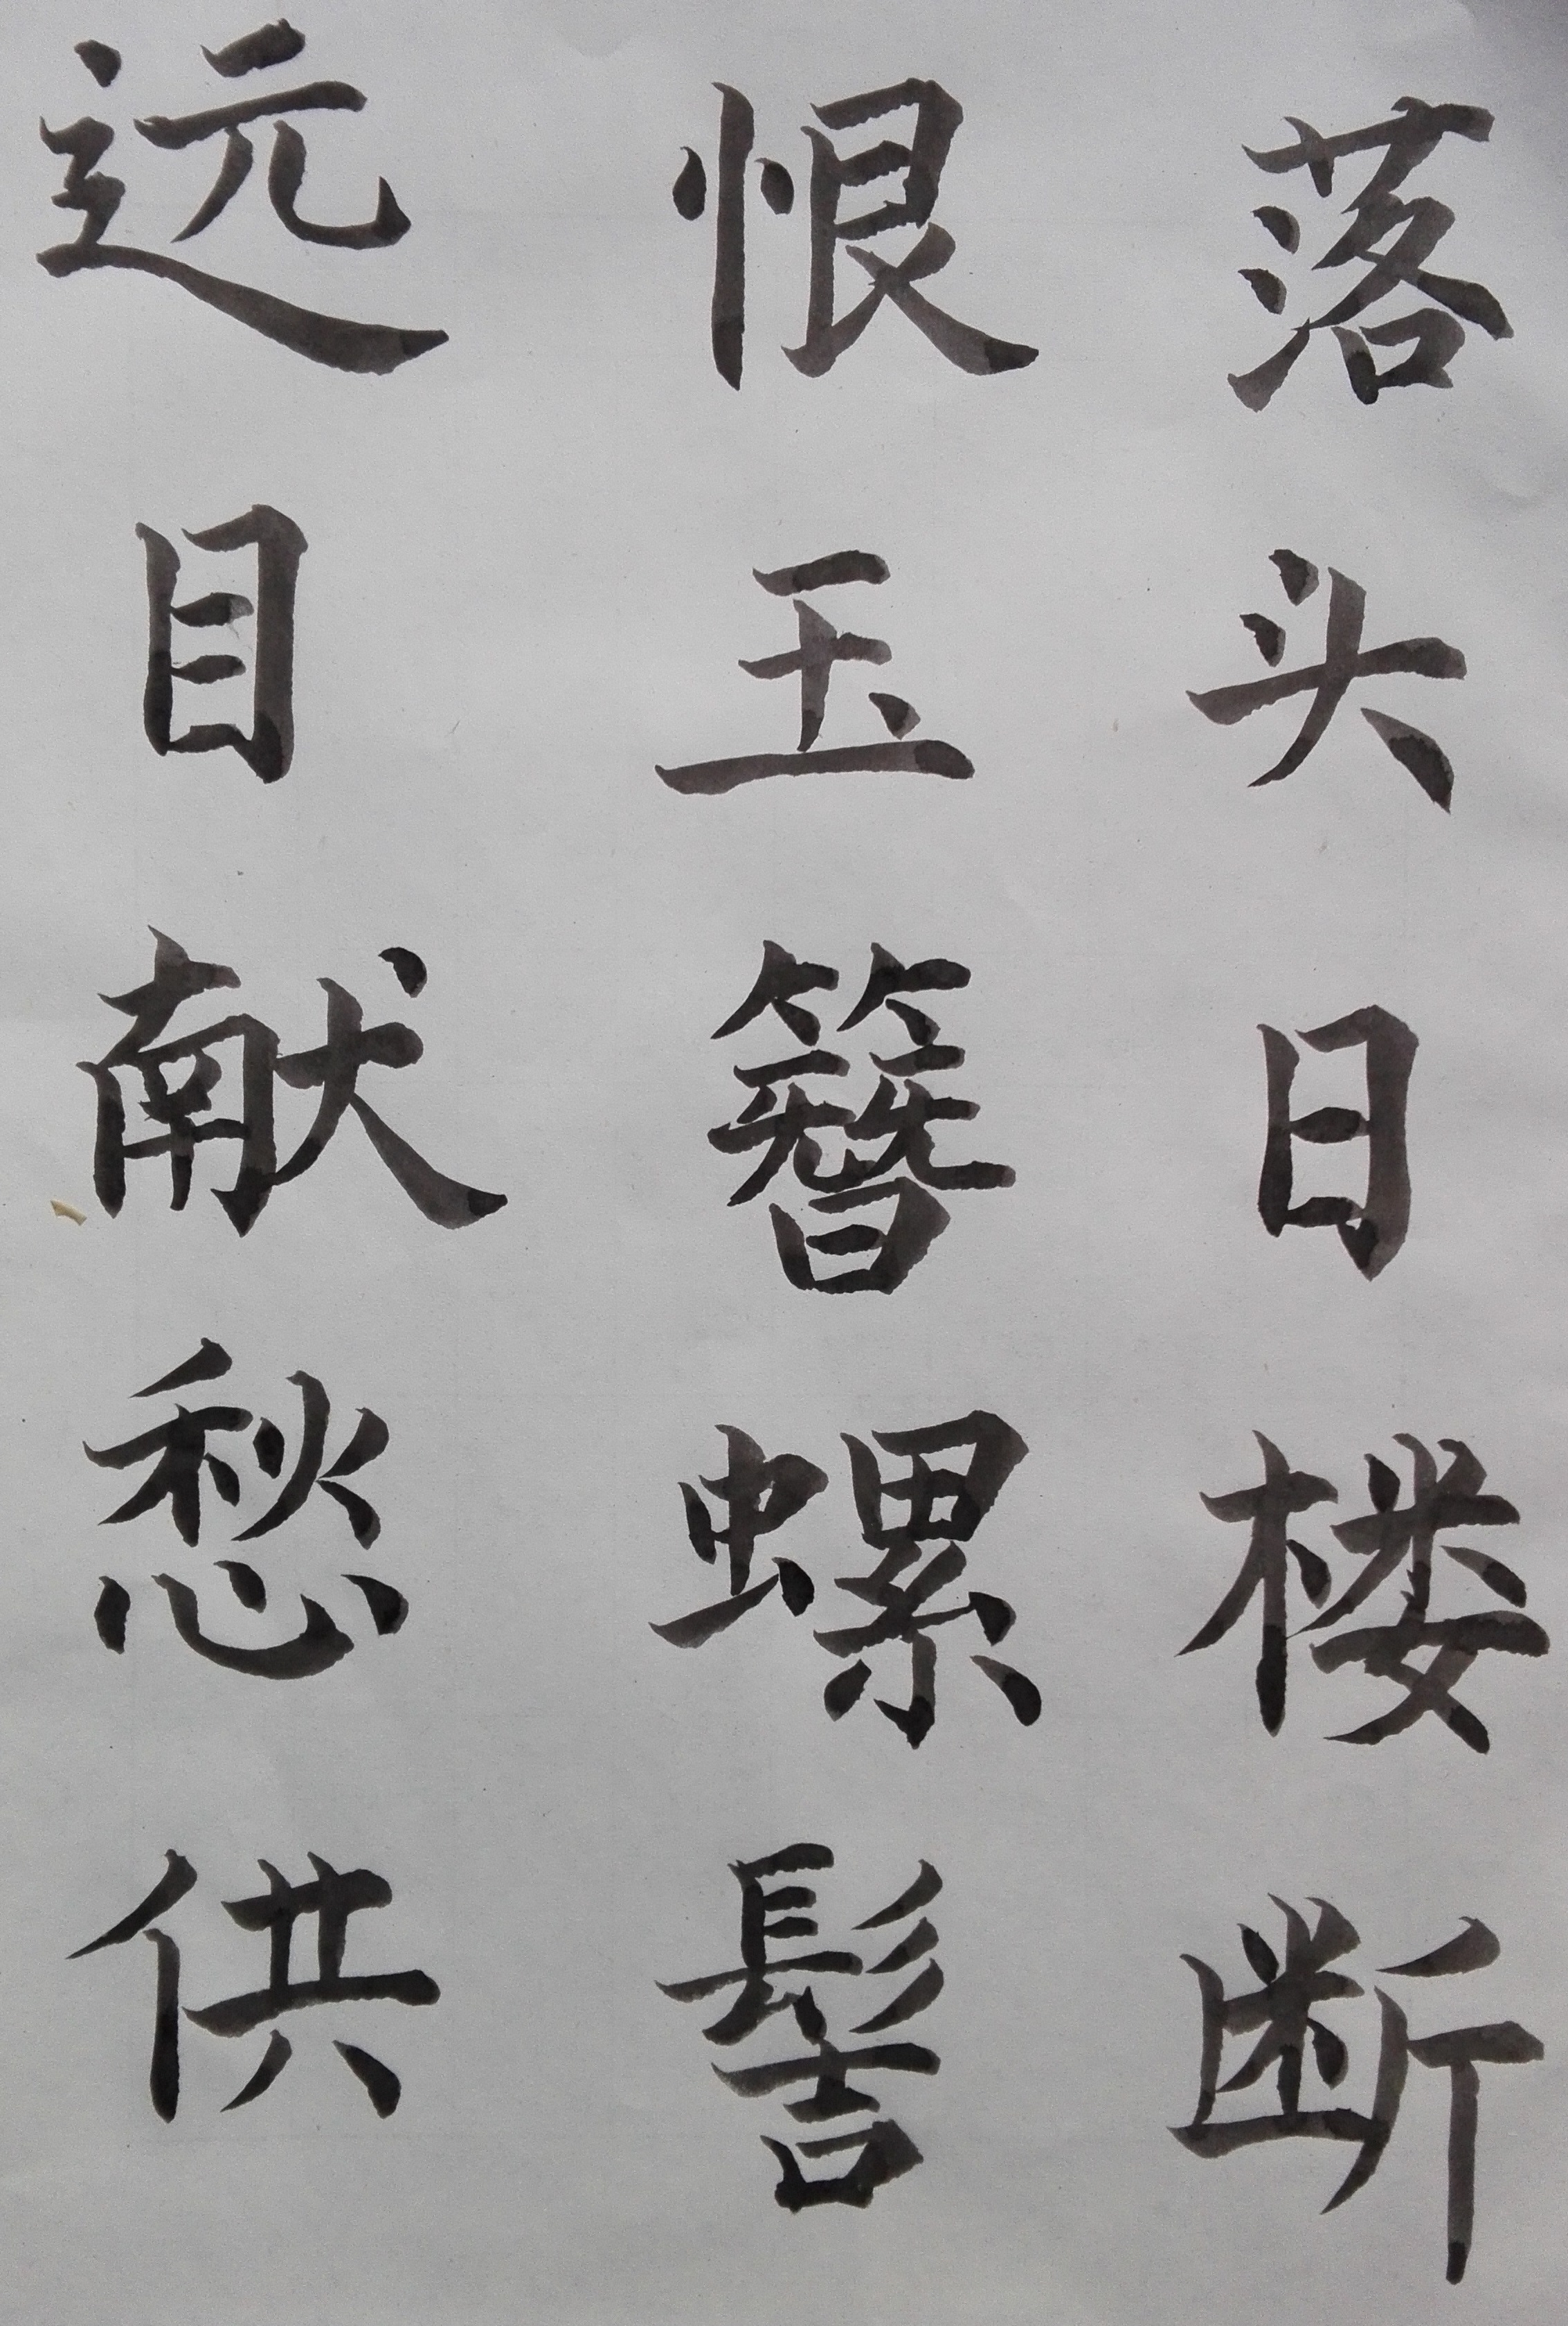 远目献愁供
恨玉簪螺髻
落头日楼断